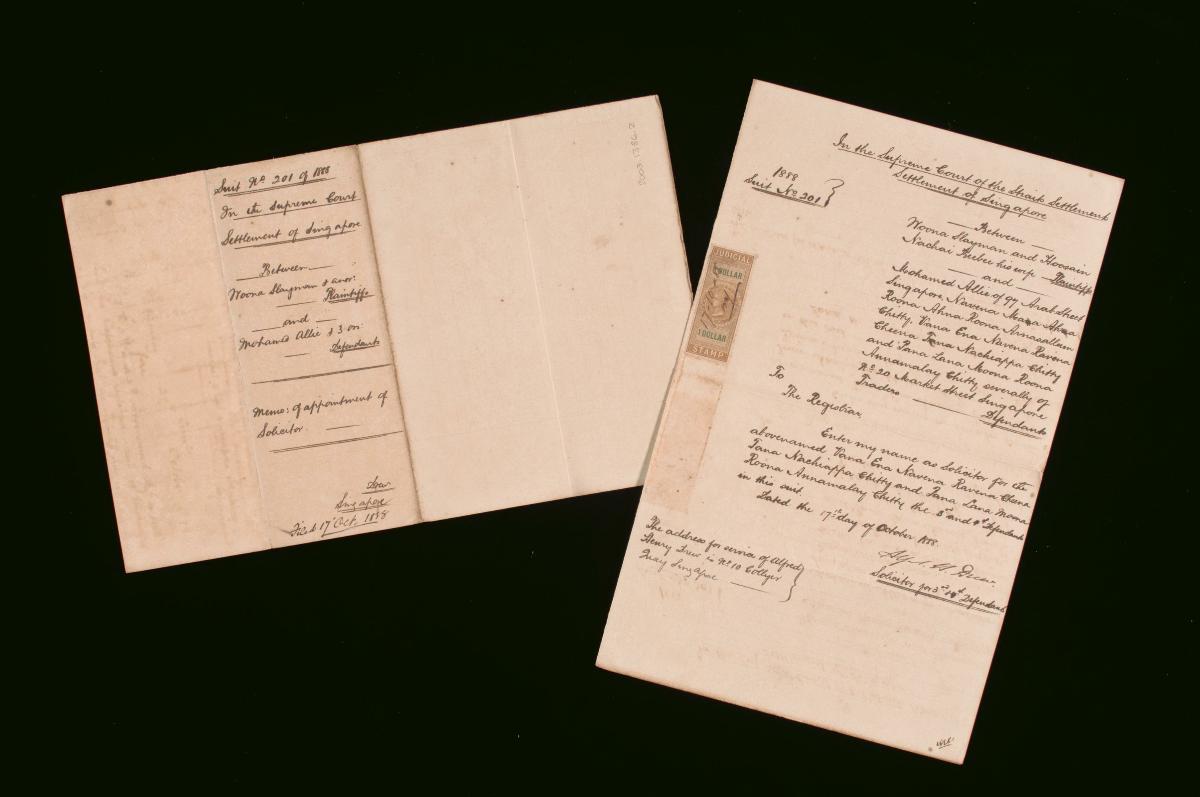 Suit No. 201 of 1888
In the Supreme Court
Settlement of Singapore
Between
Moona Slayman & anor:
Plaintiffs
and
Mohamed Allie & 3 ors:
Defendants
Memo: of appointment of
Solicitor
Drew
Singapore
Filed 17 Oct. 1888
2003.1386.2
In the Supreme Court of the Straits Settlement
Settlement of Singapore
1888
Suit No. 201
Between
Moona Slayman and Hoosain
Nachai Beebee his wife Plaintiffs
and
Mohamed Allie of 97 Arab Street
Singapore, Navena Mana Ahna
Roona Ahna Roona Arnasallem
Chitty, Vana Ena Navena Ravena
Cheena Tana Nachiappa Chitty
and Pana Lana Moona Roona
Annamalay Chitty severally of
No. 20 Market Street Singapore
Traders Defendants
To
The Registrar,
Enter my name as Solicitor for the
abovenamed Vana Ena Navena Ravena Cheena
Tana Nachiappa Chitty and Pana Lana Moona
Roona Annamalay Chitty the 3rd and 4th Defendants
in this suit.
Dated the 17th day of October 1888.
Alfd. H. Drew.
Solicitor for 3rd & 4th Defendants
The address for service of Alfred
Henry Drew is No. 10 Collyer
Quay Singapore
JUDICIAL
1 DOLLAR
1 DOLLAR
STAMP